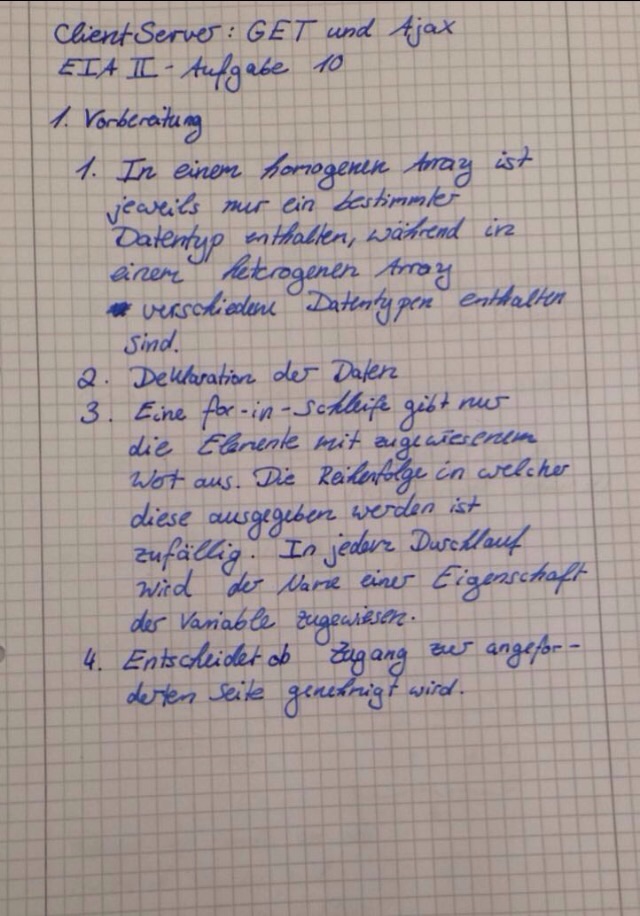 ClientServer: GET und Ajax
EIA II - Aufgabe 10
1. Vorbereitung
1. In einem homogenen Array ist
jeweils nur ein bestimmter
Datentyp enthalten, während in
einem heterogenen Array
verschiedene Datentypen enthalten
sind.
2. Deklaration der Daten
3. Eine for-in-Schleife gibt nur
die Elemente mit zugewiesenem
Wert aus. Die Reihenfolge in welcher
diese ausgegeben werden ist
zufällig. In jedem Durchlauf
wird der Name einer Eigenschaft
der Variable zugewiesen.
4. Entscheidet ob Zugang zur angefor-
derten Seite genehmigt wird.